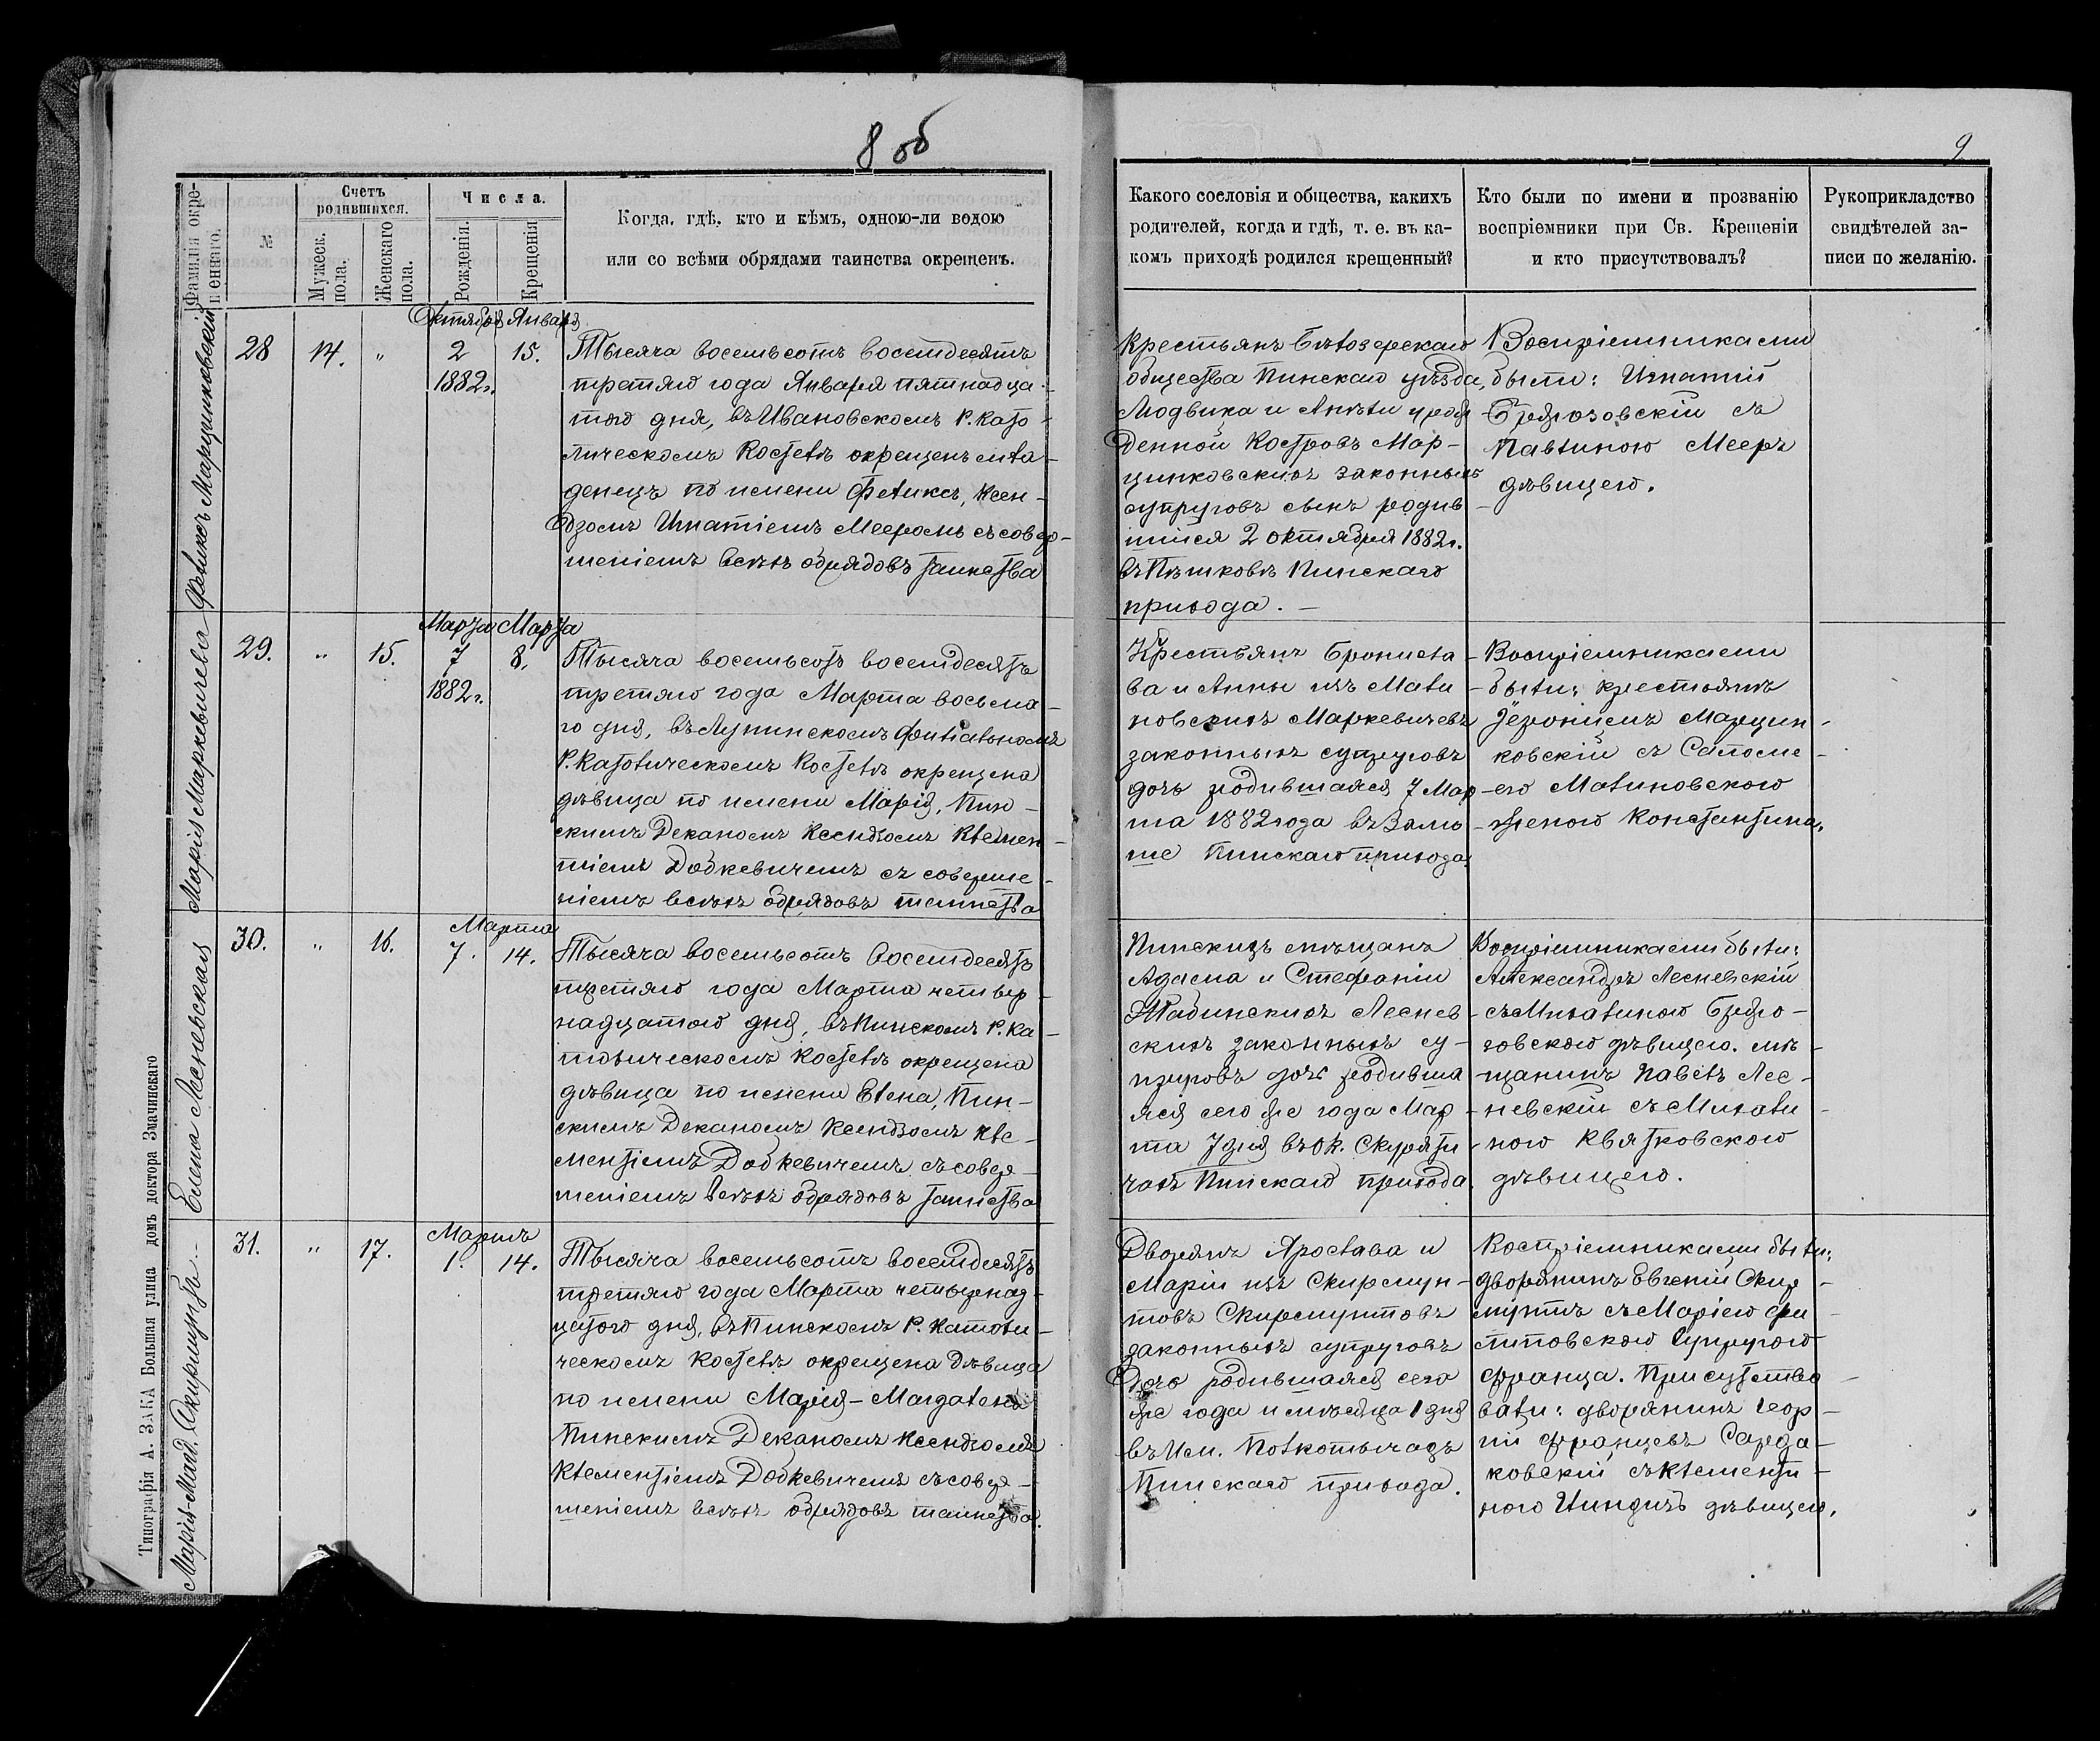 8 об
Фамилія окре-
щеннаго.
№
Счетъ
родившихся.
Мужеск.
пола.
Женскаго
пола.
Числа.
Рожденія.
Крещенія
Когда, гдѣ, кто и кѣмъ, одною-ли водою
или со всѣми обрядами таинства окрещенъ.
Феликсъ Марцинковскій
28
14.
"
Октября
2
1882г.
Января
15.
Тысяча восемьсотъ восемдесятъ
третяго года Января пятнадца-
того дня, въ Ивановскомъ Р. Като-
лическомъ Костелѣ окрещенъ мла-
денецъ по имени Феликсъ, Ксен-
дзомъ Игнатіемъ Мееромъ съ совер-
шеніемъ всѣхъ обрядовъ таинства
Марія Маркевичева
29.
"
15.
Марта
7
1882г.
Марта
8.
Тысяча восемьсотъ восемдесятъ
третяго года Марта восьма-
го дня, въ Лунинскомъ Филіальномъ
Р. Католическомъ Костелѣ окрещена
дѣвица по имени Марія, Пин-
скимъ Деканомъ Ксендзомъ Клемен-
тіемъ Додкевичемъ съ соверше-
ніемъ всѣхъ обрядовъ таинства
Елена Лесневская
30.
"
16.
Марта
7.
14.
Тысяча восемьсотъ восемдесятъ
третяго года Марта четвер-
надцатого дня, въ Пинскомъ Р. Ка-
толическомъ Костелѣ окрещена
дѣвица по имени Елена, Пин-
скимъ Деканомъ Ксендзомъ Кле-
ментіемъ Додкевичемъ съ совер-
шеніемъ всѣхъ обрядовъ таинства
Марія-Магд. Скирмунтъ.
31.
"
17.
Мартъ
1.
14.
Тысяча восемьсотъ восемдесятъ
третяго года Марта четырнад-
цатого дня, въ Пинскомъ Р. Католи-
ческомъ Костелѣ окрещена дѣвица
по имени Марія-Магдалена
Пинскимъ Деканомъ Ксендзомъ
Клементіемъ Додкевичемъ съ совер-
шеніемъ всѣхъ обрядовъ таинства.
Типографія А. ЗАКА Большая улица домъ доктора Змачинскаго
9
Какого сословія и общества, какихъ
родителей, когда и гдѣ, т. е. въ ка-
комъ приходѣ родился крещенный?
Кто были по имени и прозванію
воспріемники при Св. Крещеніи
и кто присутствовалъ?
Рукоприкладство
свидѣтелей за-
писи по желанію.
Крестьянъ Бѣлозерскаго
общества Пинскаго уѣзда,
Людвика и Анели урож
денной Костровъ Мар-
цинковскихъ законныхъ
супруговъ сынъ родив-
шійся 2 октября 1882г.
въ Пѣшковѣ Пинскаго
прихода. —
Воспріемниками
были: Игнатій
Бржозовскій съ
Павлиною Мееръ
дѣвицею.
Крестьянъ Бронисла-
ва и Анны изъ Мали-
новскихъ Маркевичевъ
законныхъ супруговъ
дочь родившаяся 7 Мар-
та 1882 года въ
Пинскаго прихода.
Воспріемниками
были: крестьянъ
Іеронимъ Марцин-
ковскій съ Саломе-
ею Малиновскою
женою Константина.
Пинскихъ мѣщанъ
Адама и Стефаніи
Жабинскихъ Леснев-
скихъ законныхъ су-
пруговъ дочь родивша-
яся сего же года Мар-
та 7 дня въ ок.
Пинскаго прихода.
Воспріемниками были:
Александръ Лесневскій
съ Михалиною Бржо-
зовскою дѣвицею. мѣ-
щанинъ Павелъ Лес-
невскій съ Михали-
ною Квятковскою
дѣвицею.
Дворянъ Ярослава и
Маріи изъ Скирмун-
товъ Скирмунтовъ
законныхъ супруговъ
дочь родившаяся сего
же года и мѣсяца 1 дня
въ Им.
Пинскаго прихода.
Воспріемниками были:
дворянинъ Евгеній Скир-
мунтъ съ Маріею Фи-
липовскою супругою
Франца. Присутство-
вали: дворянинъ Геор-
гій Францевъ
съ Клементи-
ною дѣвицею.